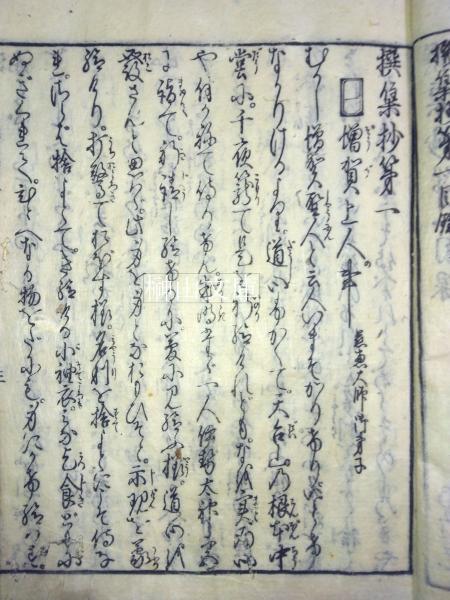 撰集抄第一
増賀上人事
慈恵大師御弟子
むかし増賀聖人と云人いまそかりけりいとけ
なかりけるより道心ふかくて天台山の根本中
堂に千夜籠て是をいのり給けれともなを実の心
や付かねて侍けんある時たゝ一人伊勢大神宮
に詣て祈請し給けるに夢に見給ふ様道心を
發さんと思はゝ此身を身とな思ひそと示現を蒙
給けり打驚ておほす様名利を捨よとにこそ侍な
れさらは捨よとてき給ける小袖衣みな乞食ともに
ぬきくれてひとへなる物をたにも身にかけ給はす
榊山文庫